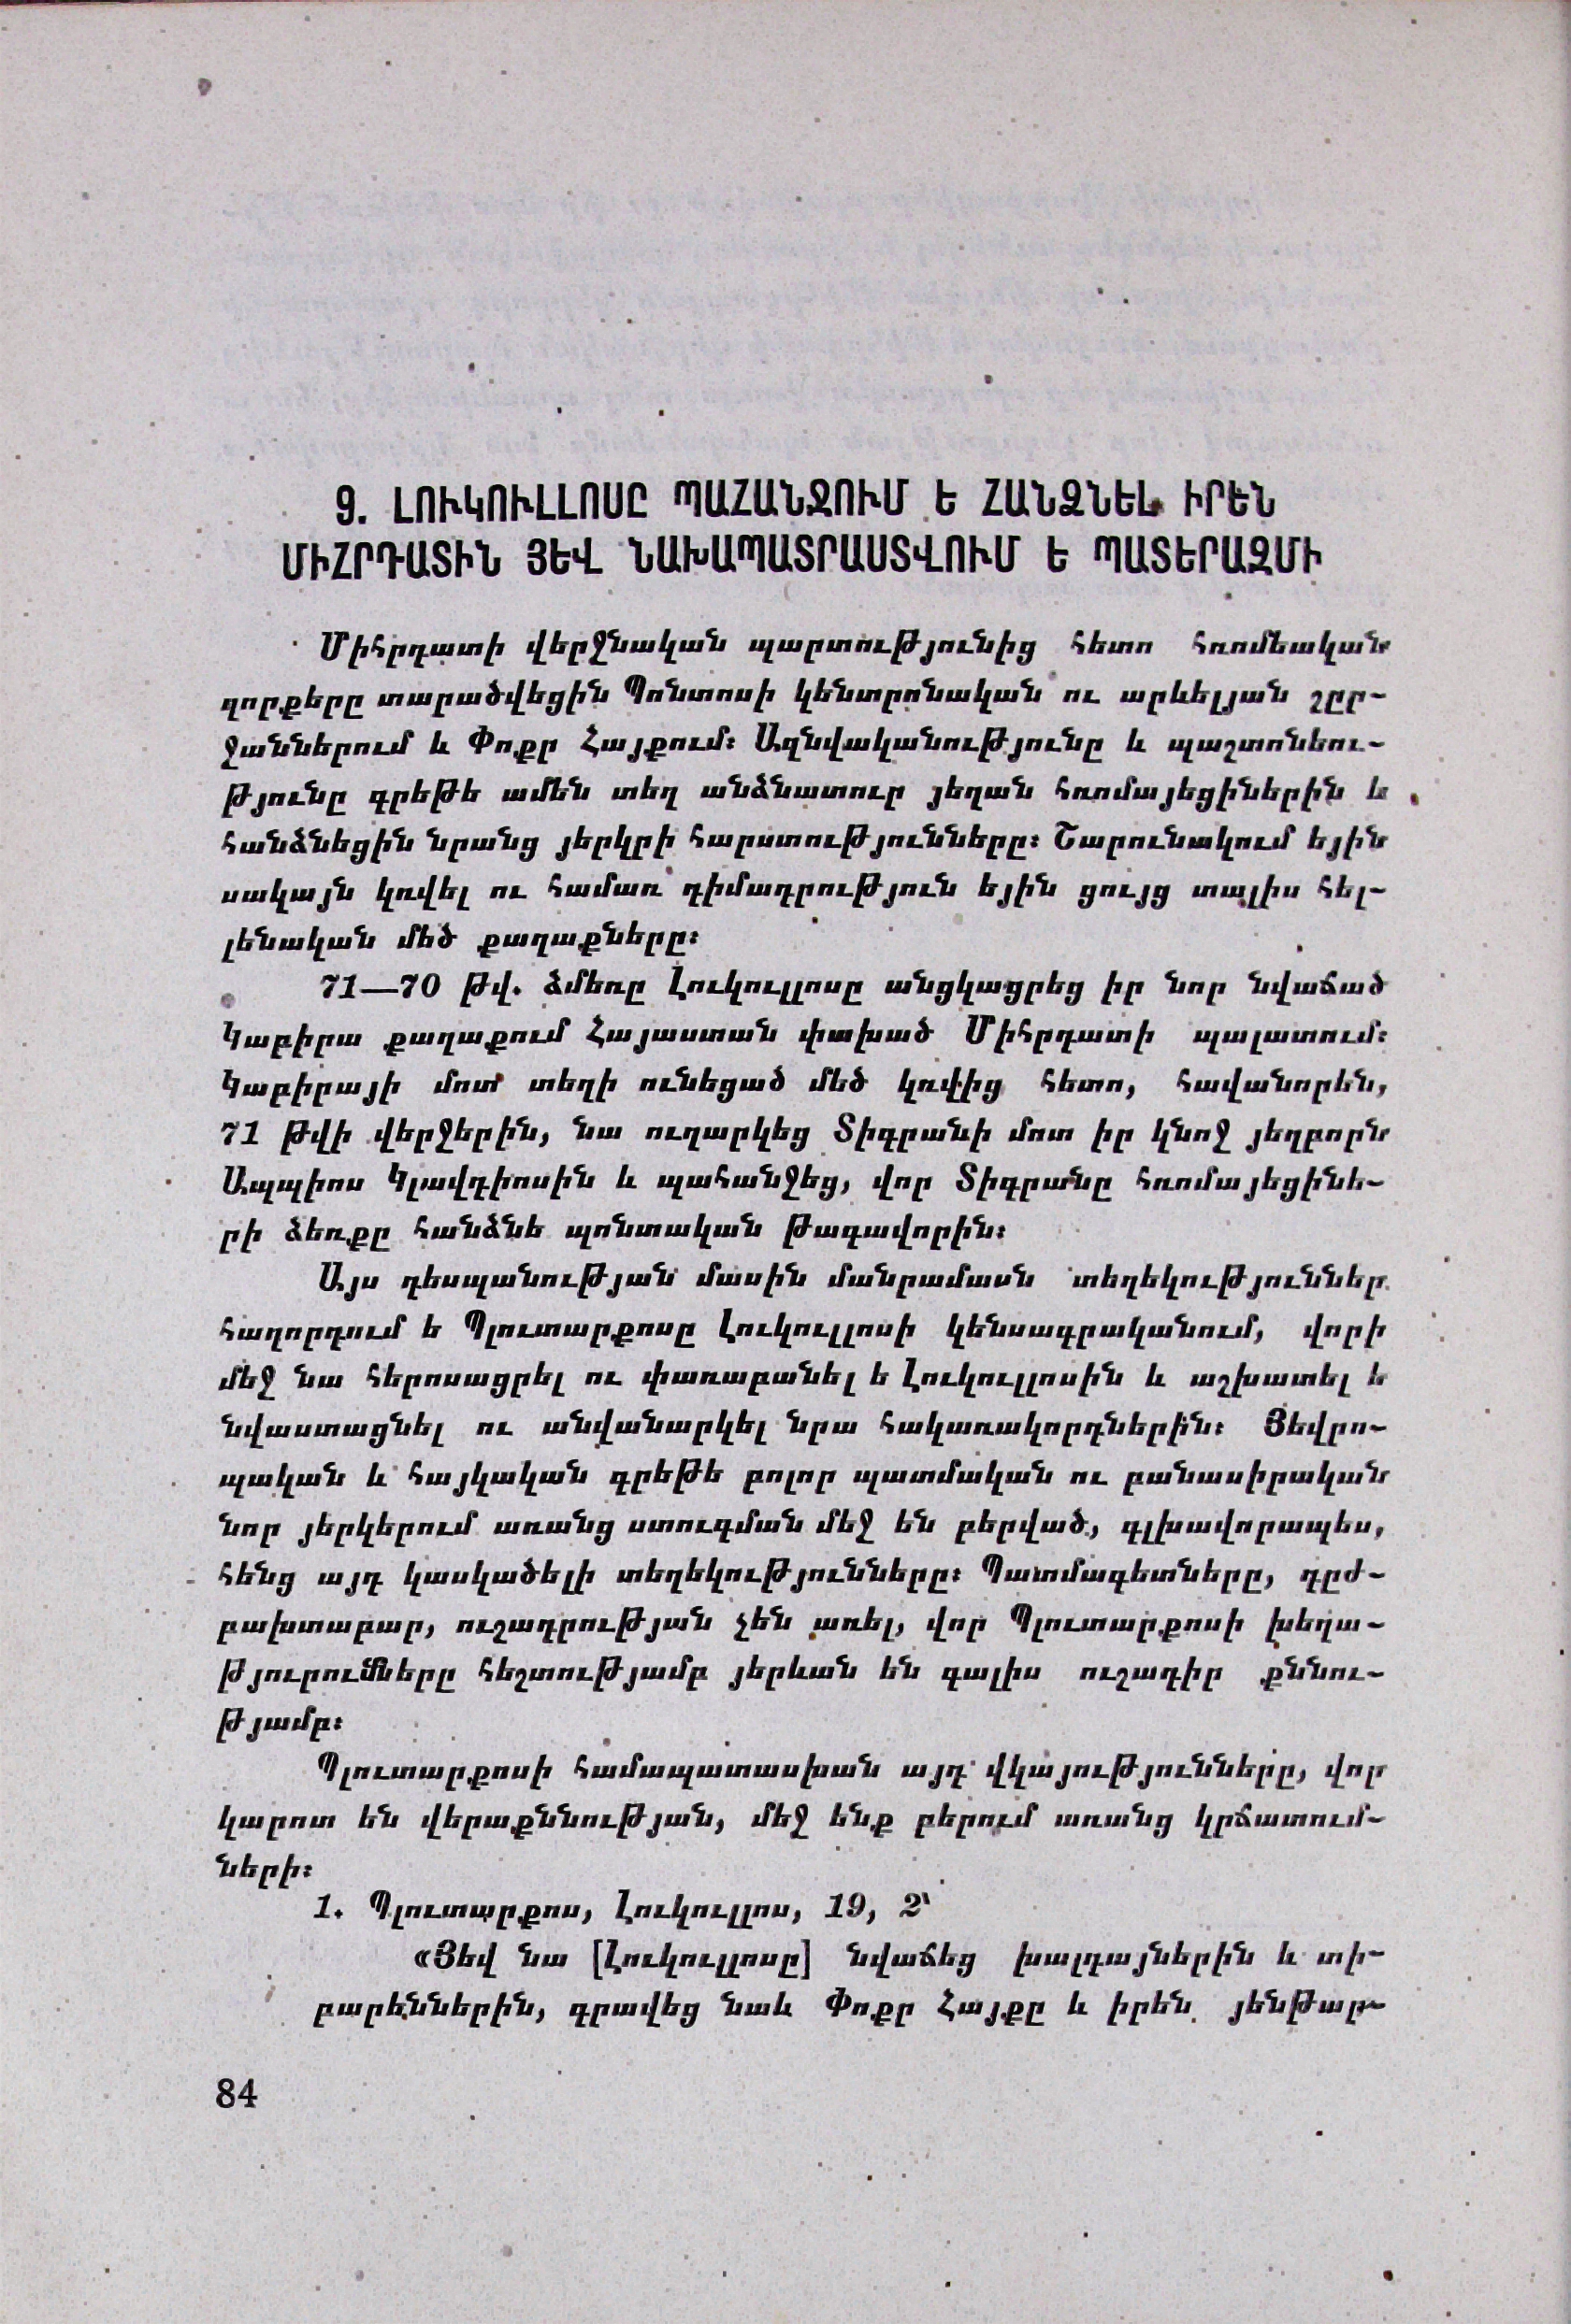 9. ԼՈՒԿՈՒԼԼՈՍԸ ՊԱՀԱՆՋՈՒՄ Ե ՀԱՆՁՆԵԼ ԻՐԵՆ
ՄԻՀՐԴԱՏԻՆ ՅԵՎ ՆԱԽԱՊԱՏՐԱՍՏՎՈՒՄ Ե ՊԱՏԵՐԱԶՄԻ
Միհրդատի վերջնական պարտությունից հետո հռոմեական
զորքերը տարածվեցին Պոնտոսի կենտրոնական ու արևելյան շըր-
ջաններում և Փոքր Հայքում։ Ազնվականությունը և պաշտոնեու-
թյունը գրեթե ամեն տեղ անձնատուր յեղան հռոմայեցիներին և
հանձնեցին նրանց յերկրի հարստությունները։ Շարունակում եյին
սակայն կռվել ու համառ դիմադրություն եյին ցույց տալիս հել-
լենական մեծ քաղաքները։
71—70 թվ. ձմեռը Լուկուլլոսը անցկացրեց իր նոր նվաճած
Կաբիրա քաղաքում Հայաստան փախած Միհրդատի պալատում։
Կաբիրայի մոտ տեղի ունեցած մեծ կռվից հետո, հավանորեն,
71 թվի վերջերին, նա ուղարկեց Տիգրանի մոտ իր կնոջ յեղբորն
Ապպիոս Կլավդիոսին և պահանջեց, վոր Տիգրանը հռոմայեցինե-
րի ձեռքը հանձնե պոնտական թագավորին։
Այս դեսպանության մասին մանրամասն տեղեկություններ
հաղորդում ե Պլուտարքոսը Լուկուլլոսի կենսագրականում, վորի
մեջ նա հերոսացրել ու փառաբանել ե Լուկուլլոսին և աշխատել ե
նվաստացնել ու անվանարկել նրա հակառակորդներին։ Յեվրո-
պական և հայկական գրեթե բոլոր պատմական ու բանասիրական
նոր յերկերում առանց ստուգման մեջ են բերված, գլխավորապես,
հենց այդ կասկածելի տեղեկությունները։ Պատմագետները, դըժ-
բախտաբար, ուշադրության չեն առել, վոր Պլուտարքոսի խեղա-
թյուրումները հեշտությամբ յերևան են գալիս ուշադիր քննու-
թյամբ։
Պլուտարքոսի համապատասխան այդ վկայությունները, վոր
կարոտ են վերաքննության, մեջ ենք բերում առանց կրճատում-
ների։
1. Պլուտարքոս, Լուկուլլոս, 19, 2՝
«Յեվ նա [Լուկուլլոսը] նվաճեց խալդայներին և տի-
բարեններին, գրավեց նաև Փոքր Հայքը և իրեն յենթար-
84